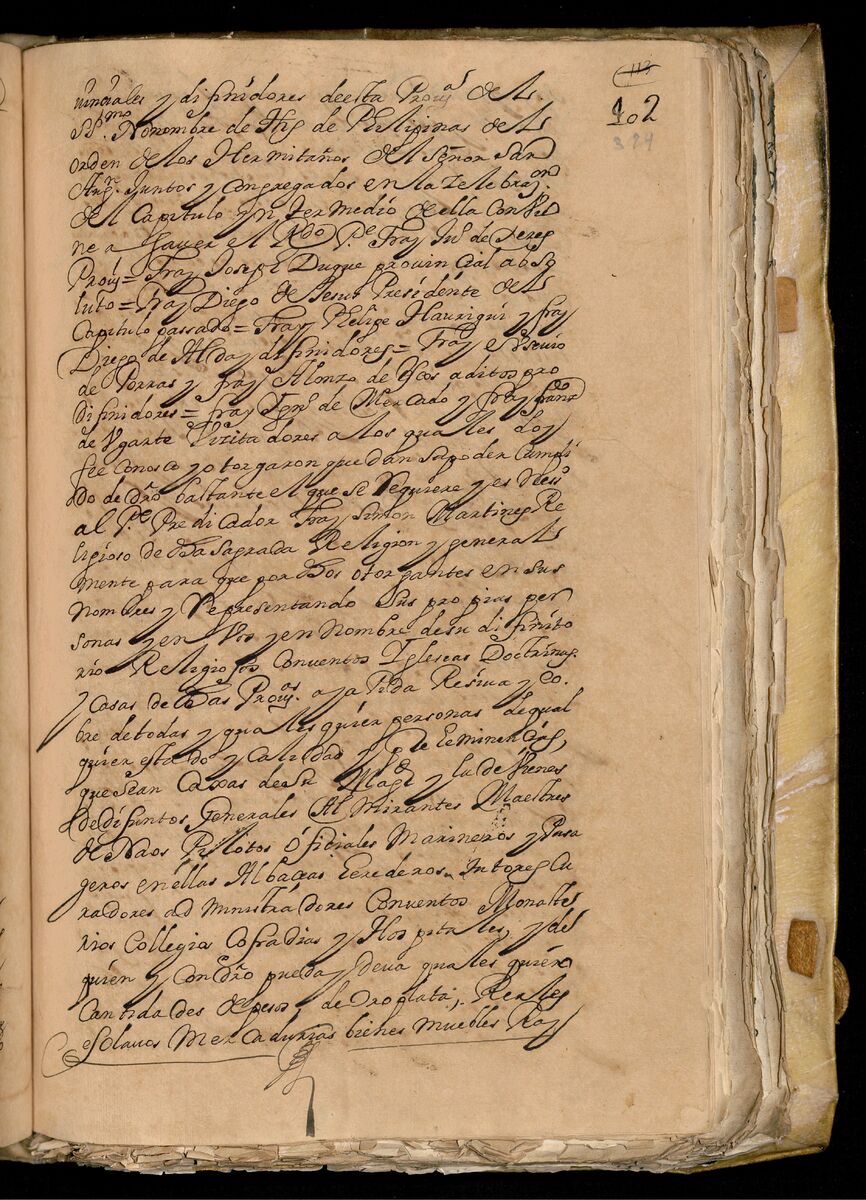 113
102
394
vinciales y difinidores deesta Prouª del
SSmo. Nonombre de Jhs de Phelipinas del
orden de los Hermitaños del Señor San
Augn. Juntos y congregados en la Zelebraçon
del Capitulo yn Termedio de ella conbie
ne a Sauer el Rdo Pe Fray Juº de Xeres
Proul = Fray Joseph Duque provincial abso
luto = Fray Diego de Jesus Presidente del
Capitulo passado = Fray Phelipe Jaurigui y fray
Diego de Alday difinidores = Fray eUsevio
de Porras y fray Alonzo de aditos pro
difinidores = fray Ygnº de Mercado y fray franco
de Ugarte Vizitadores a los quales doy
fee conosco y otorgaron que dan su poder Cumpli
do de dro bastante el que se Requiere y es Nesso
al Pe Predicador Fray Simon Martines Re
ligioso de dha Sagrada Religion y general
mente para que por dhos otorgantes en sus
nombres y Representando sus propias per
sonas y en Vos y en nombre de su difinito
rio Religiosos Conventos Iglesias Doctrinas
y Casas de dhas Prouas. aya Pida Resiva y Co
bre de todas y quales quier personas de qual
quier estado y calidad y Preeminencias,
que sean Caxas de su Magd y la de Vienes
de difuntos Generales Almirantes Maestres
de Naos Pilotos ofisiales Marineros y Pasa
geros en ellas Albaceas Erederos tutores Cu
radores administradores Conventos Monaste
rios Collegios Cofradias y Hospitales, y de
quien y con dro pueda y deva quales quiera
Cantidades de pesos de oro plata, Reales
esclavos Mercadurias bienes muebles Ray